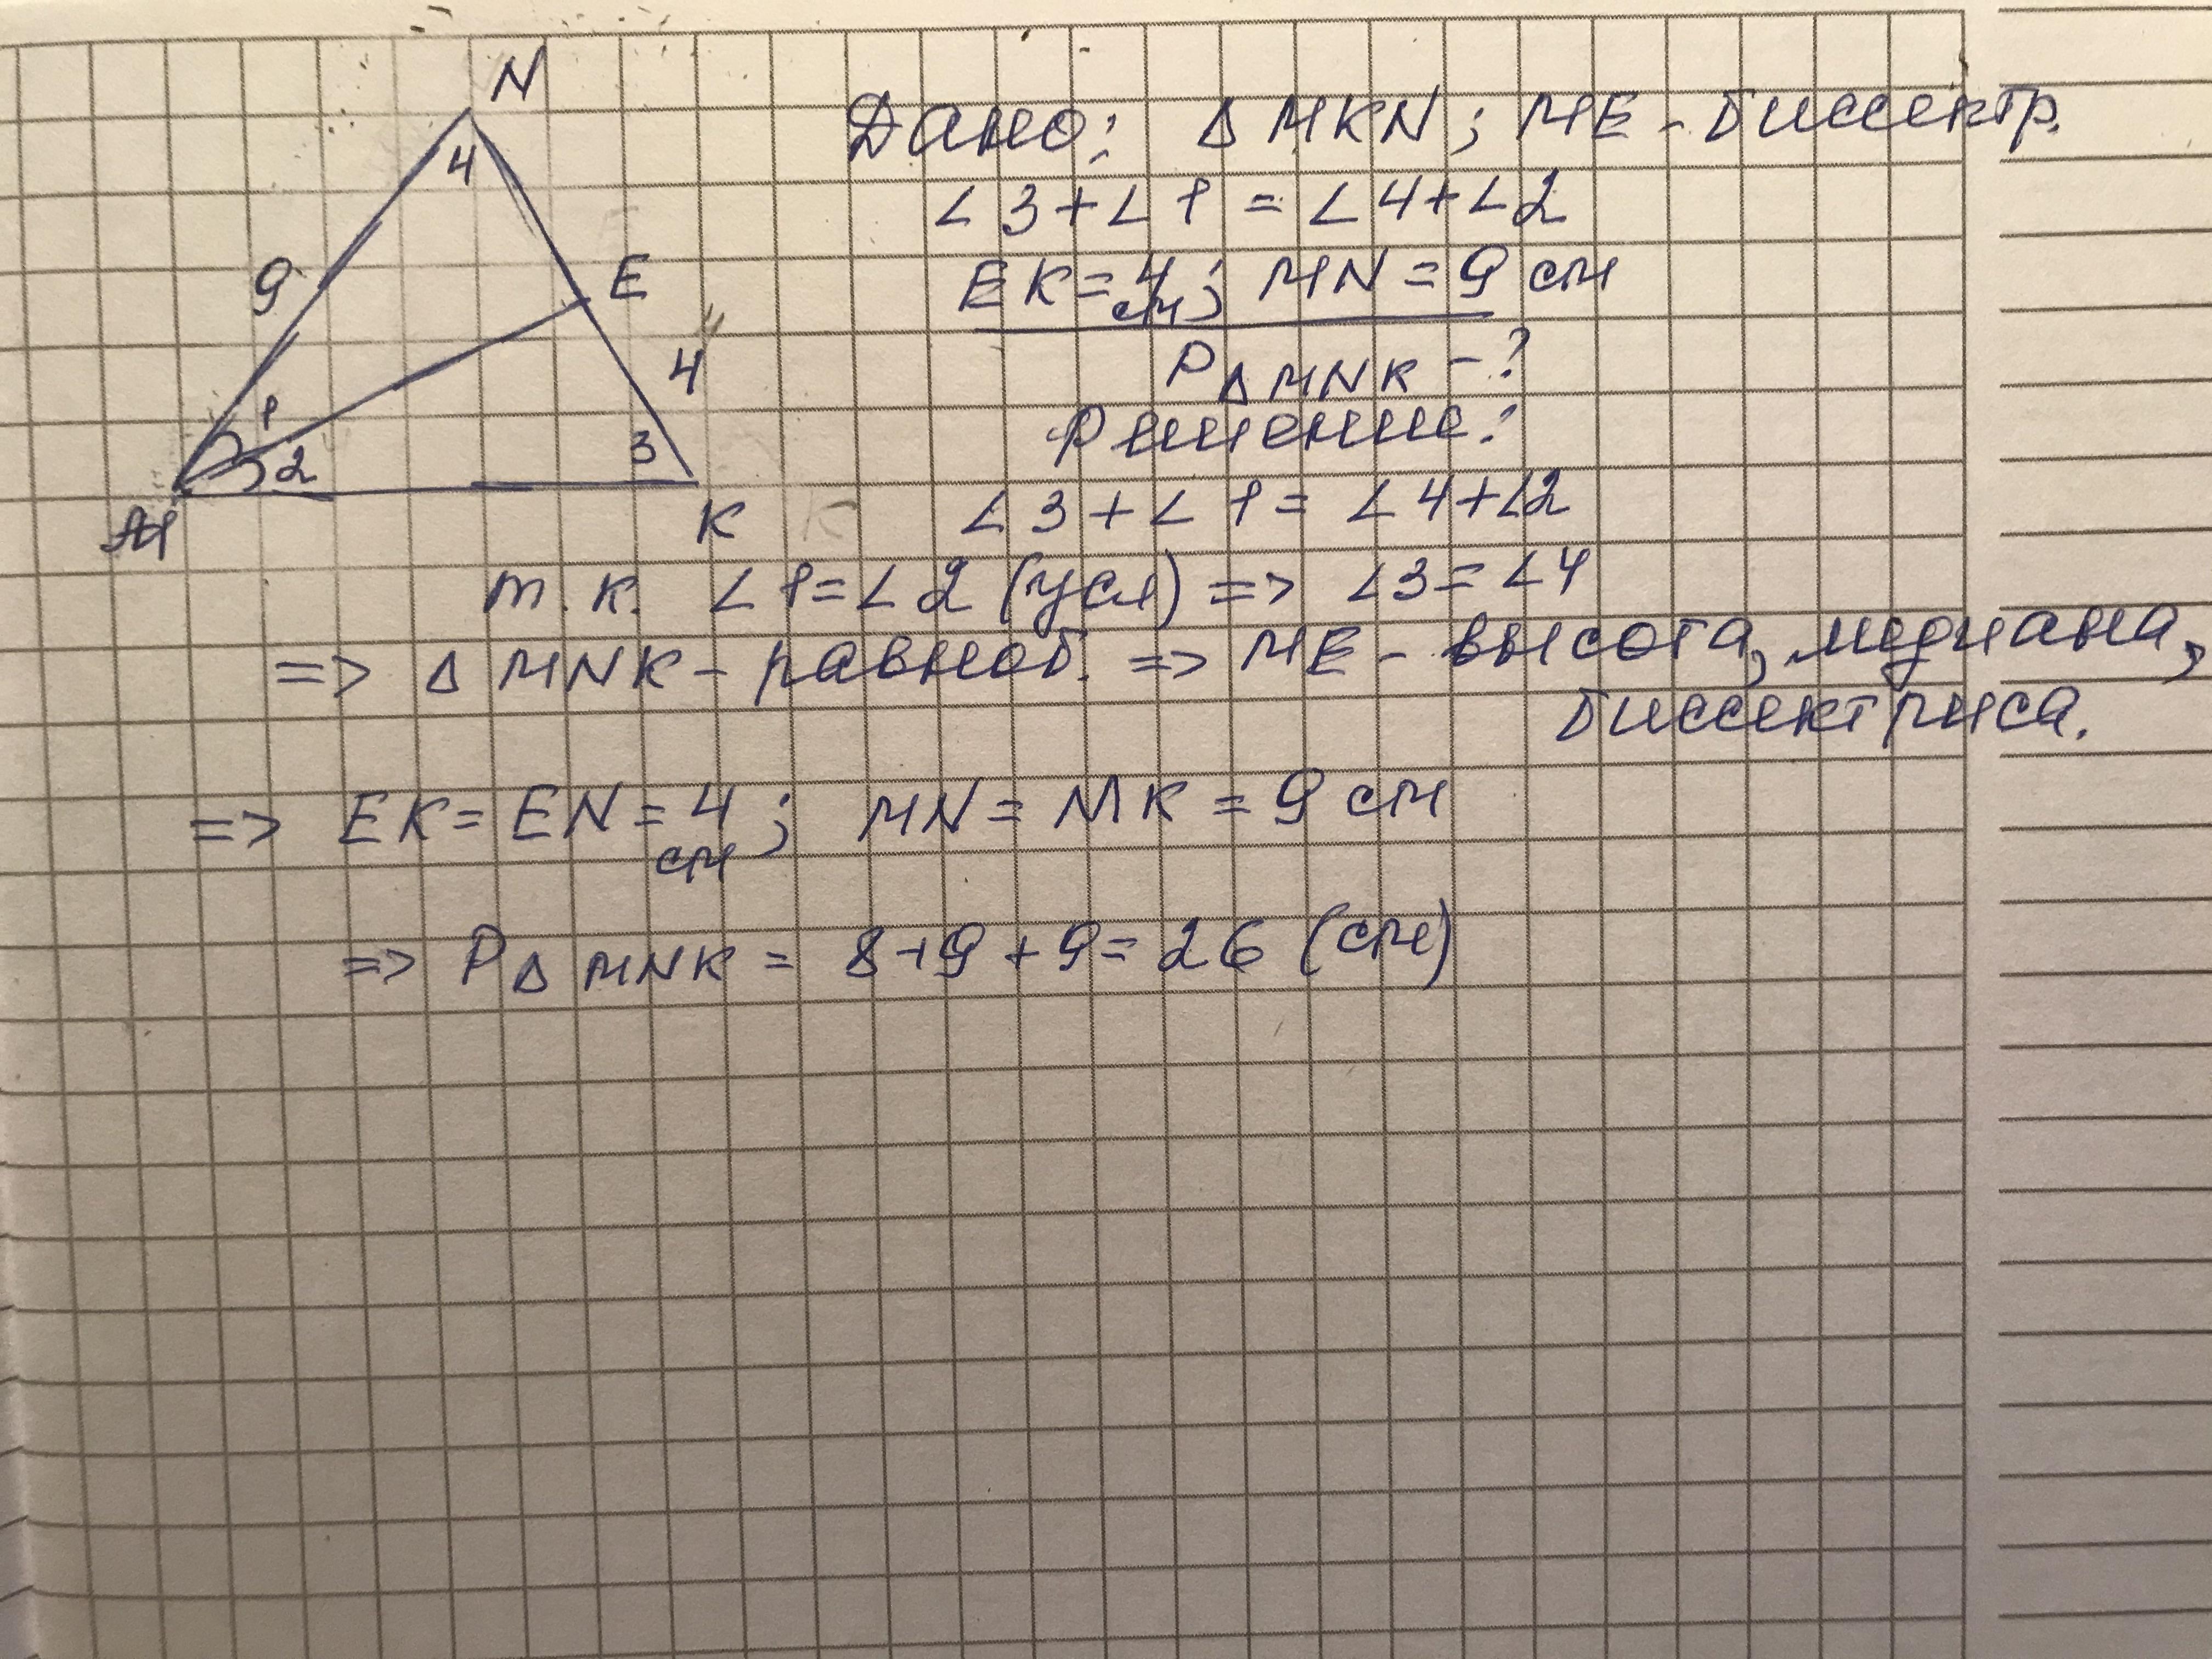 N
4
9
E
4
1
2
3
M
K
Дано: Δ MKN; ME - биссектр.
∠3+∠1 = ∠4+∠2
EK=4 см; MN = 9 см
P Δ MNK - ?
Решение:
∠3+∠1= ∠4+∠2
т.к. ∠1=∠2 (усл) => ∠3=∠4
=> Δ MNK - равноб. => ME - высота, медиана,
биссектриса.
=> EK= EN= 4 см; MN = MK = 9 см
=> P Δ MNK = 8+9+9= 26 (см)